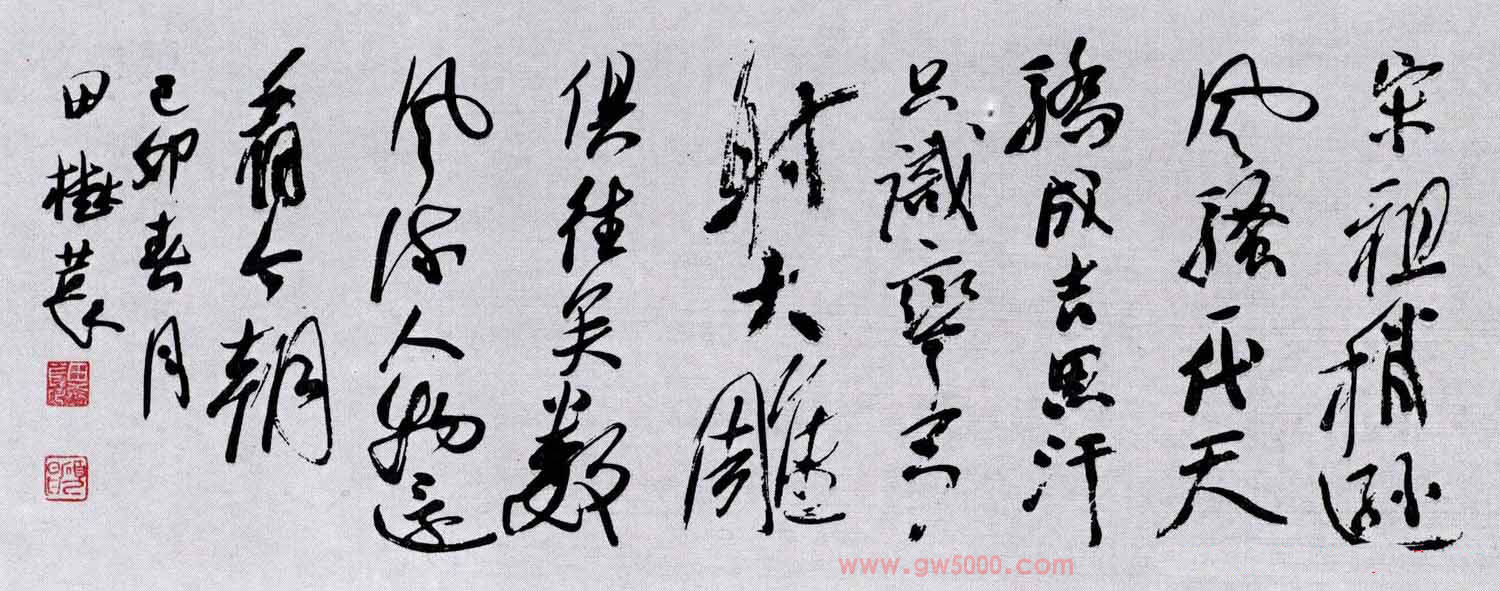 宋祖稍逊
风骚一代天
骄成吉思汗
只識彎弓
射大雕
俱往矣数
风流人物还
看今朝
己卯春月
田樹萇
www.gw5000.com